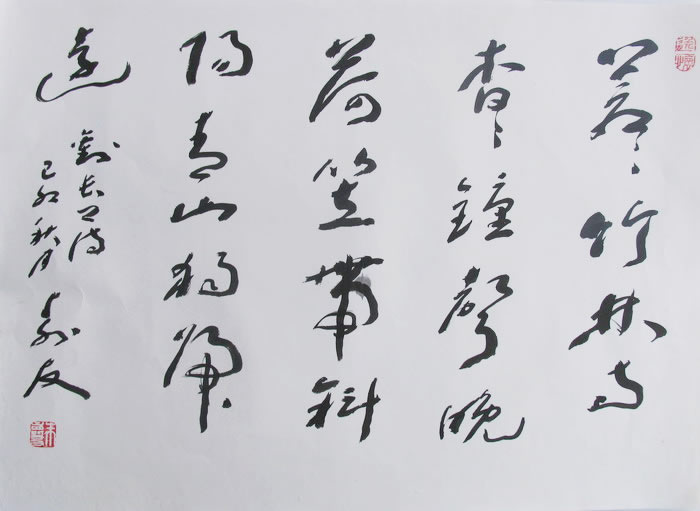 蒼〻竹林寺
杳〻鐘聲晚
荷笠帶斜
陽青山獨歸
遠
劉長卿詩
己卯秋月